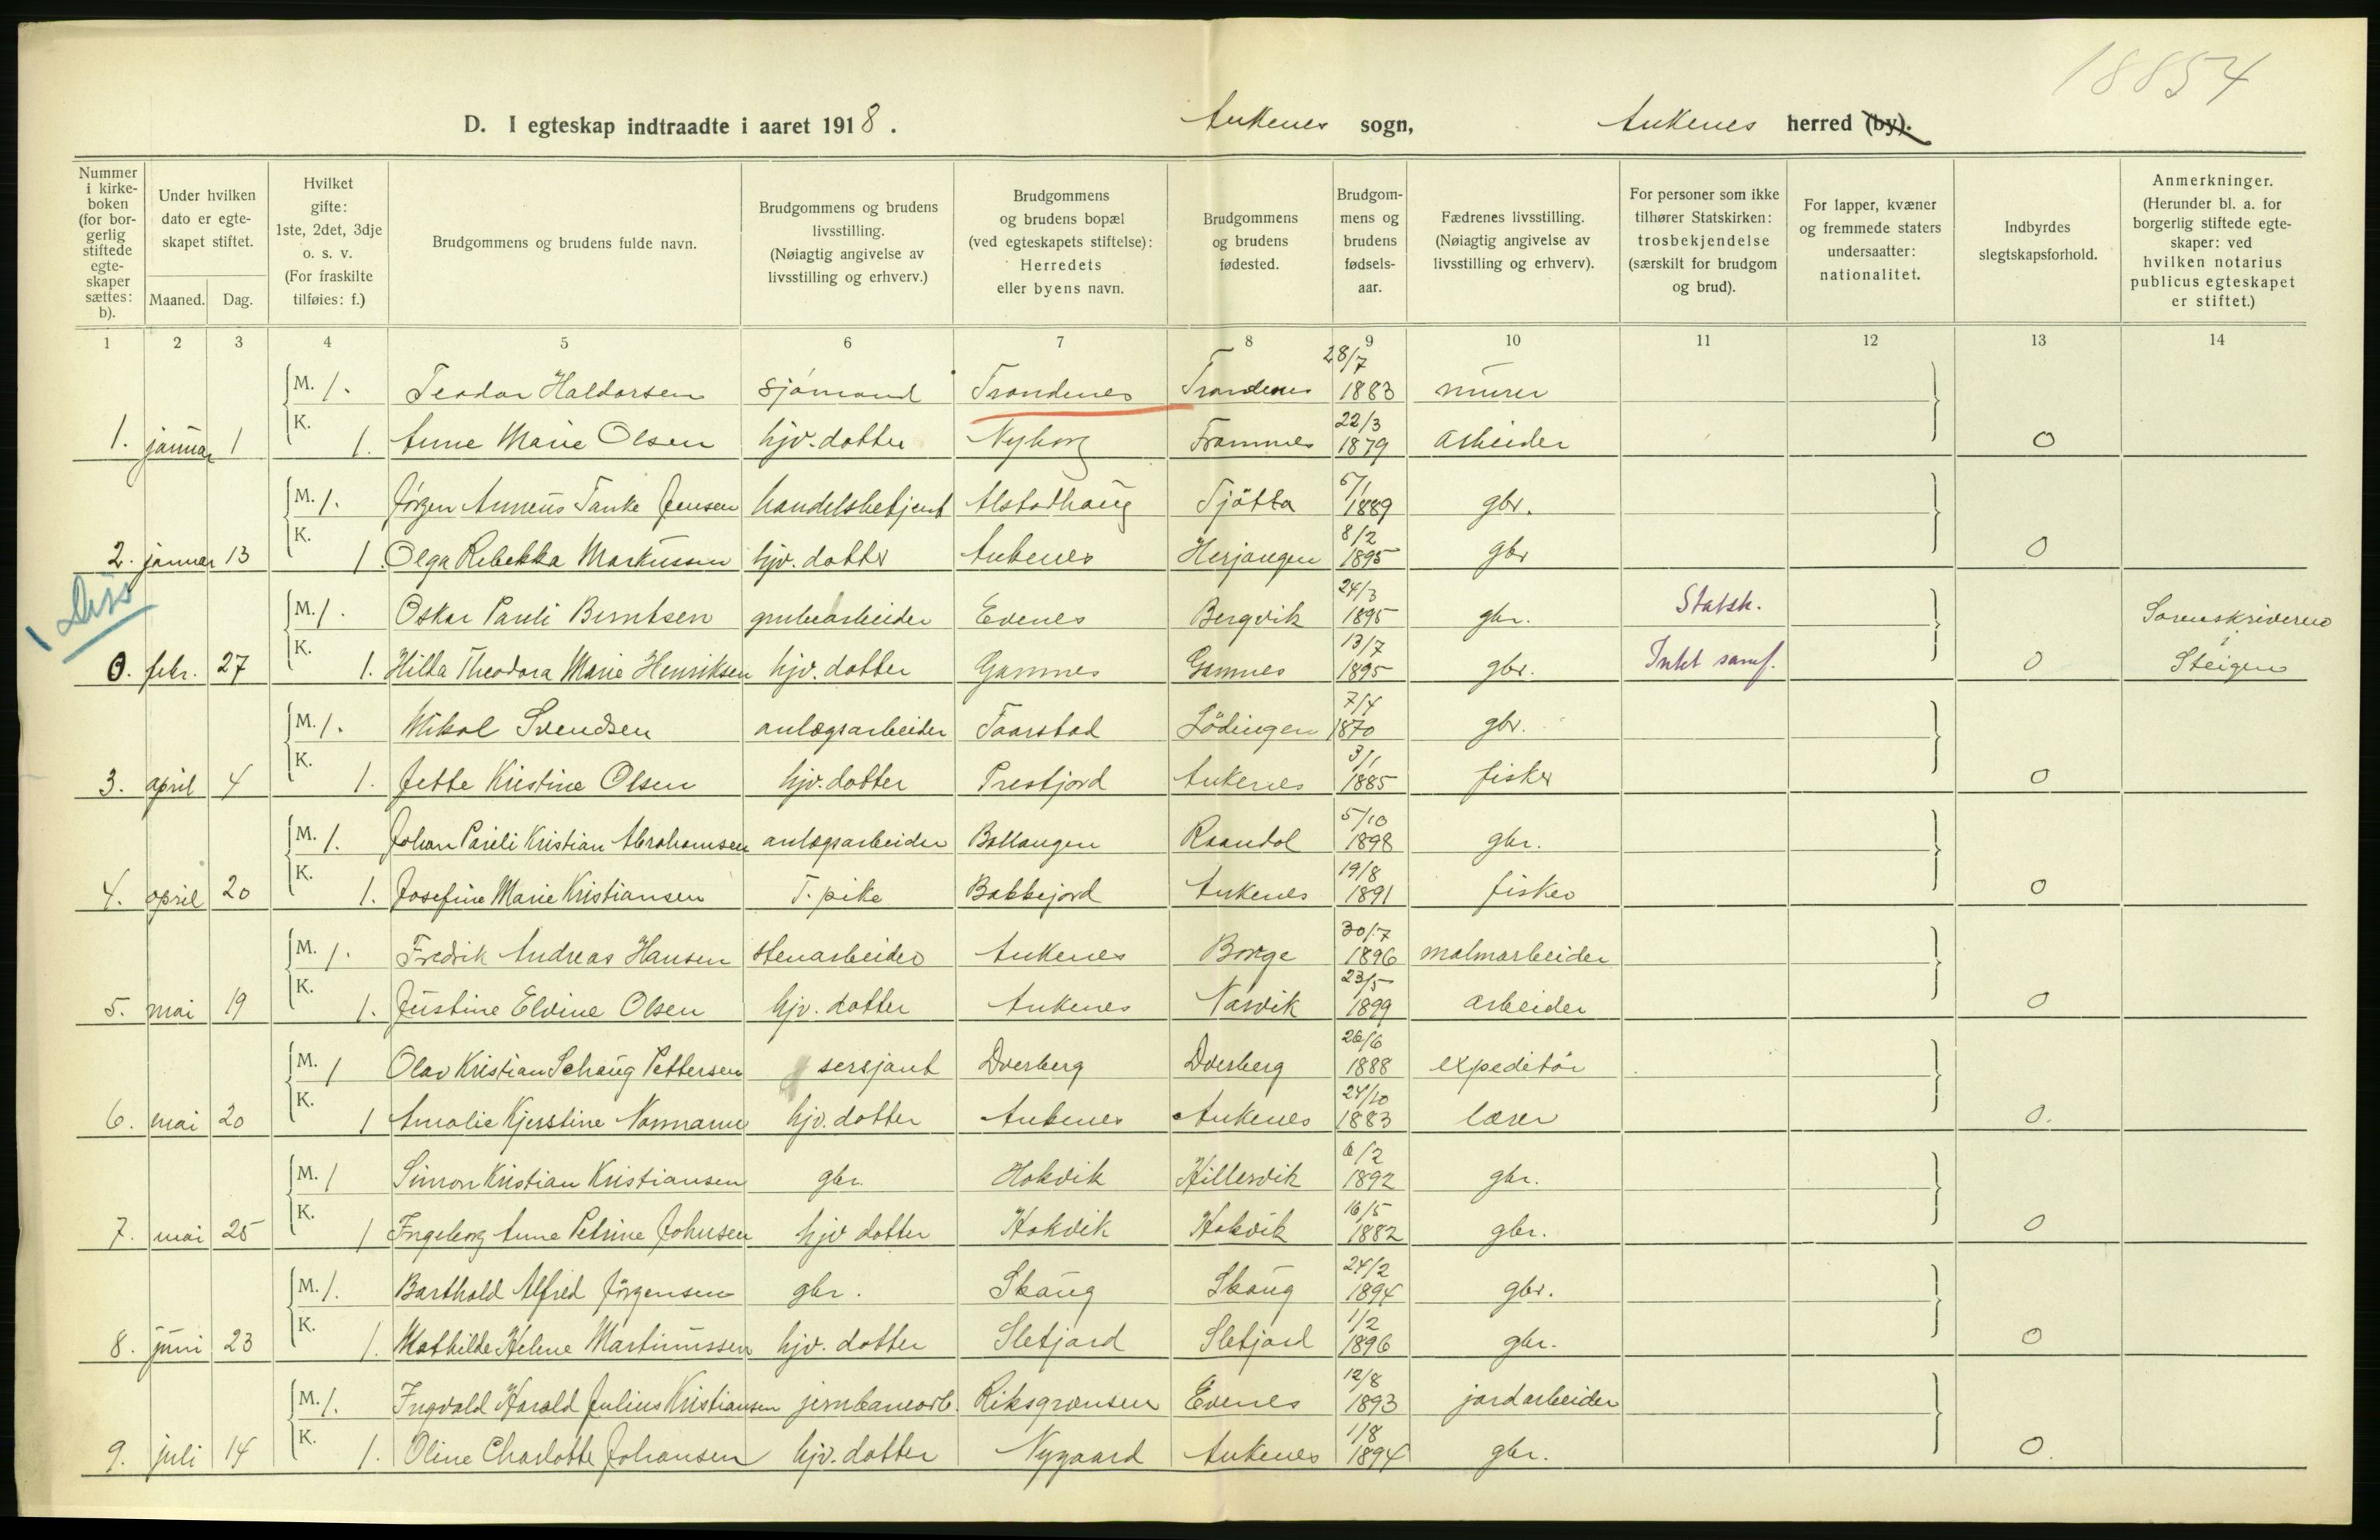 18854
D. I egteskap indtraadte i aaret 1918. Ankenes sogn, Ankenes herred (by).
Nummer i kirkeboken (for borgerlig stiftede egteskaper sættes: b).
Under hvilken dato er egteskapet stiftet.
Maaned. Dag.
Hvilket gifte: 1ste, 2det, 3dje o. s. v. (For fraskilte tilføies: f.)
Brudgommens og brudens fulde navn.
Brudgommens og brudens livsstilling. (Nøiagtig angivelse av livsstilling og erhverv.)
Brudgommens og brudens bopæl (ved egteskapets stiftelse): Herredets eller byens navn.
Brudgommens og brudens fødested.
Brudgommens og brudens fødselsaar.
Fædrenes livsstilling. (Nøiagtig angivelse av livsstilling og erhverv).
For personer som ikke tilhører Statskirken: trosbekjendelse (særskilt for brudgom og brud).
For lapper, kvæner og fremmede staters undersaatter: nationalitet.
Indbyrdes slegtskapsforhold.
Anmerkninger. (Herunder bl. a. for borgerlig stiftede egteskaper: ved hvilken notarius publicus egteskapet er stiftet.)
1 2 3 4 5 6 7 8 9 10 11 12 13 14
M. 1. Teodor Haldorsen sjömand Trondenes Trondenes 28/7 1883 murer
1. januar 1 K. 1. Anne Marie Olsen hjv. datter Nyborg Framnes 22/3 1879 arbeider 0
M. 1. Jörgen Anneus Tanke Jensen handelsbetjent Alstadhaug Tjötta 5/1 1889 gbr.
2. januar 13 K. 1. Olga Rebekka Markussen hjv. datter Ankenes Herjangen 8/2 1895 gbr 0
Diss
M. 1. Oskar Pauli Berntsen grubearbeider Evenes Bergvik 24/3 1895 gbr. Statsk. Sorenskriveren
0. febr. 27 K. 1. Hilda Theodora Marie Henriksen hjv. datter Gamnes Gamnes 13/7 1895 gbr. Intet samf. 0 i Steigen
M. 1. Mikal Svendsen anlægsarbeider Taarstad Lödingen 7/4 1870 gbr.
3. april 4 K. 1. Jette Kristine Olsen hjv. datter Prestjord Ankenes 3/1 1885 fisker 0
M. 1. Johan Pauli Kristian Abrahamsen anlægsarbeider Ballangen Raandal 5/10 1898 gbr.
4. april 20 K. 1. Josefine Marie Kristiansen T. pike Bakkejord Ankenes 19/8 1891 fisker 0
M. 1. Fredrik Andreas Hansen stenarbeider Ankenes Borge 30/7 1896 malmarbeider
5. mai 19 K. 1. Justine Elvine Olsen hjv. datter Ankenes Narvik 23/5 1899 arbeider 0
M. 1 Olav Kristian Schaug Pettersen sersjant Dverberg Dverberg 26/6 1888 expeditör
6. mai 20 K. 1 Amalie Kjerstine Normann hjv. datter Ankenes Ankenes 24/10 1883 lærer 0.
M. 1 Simon Kristian Kristiansen gbr. Hokvik Hillesvik 6/2 1892 gbr.
7. mai 25 K. 1 Ingeborg Anne Petrine Johnsen hjv datter Hokvik Hokvik 16/5 1882 gbr. 0
M. 1. Barthold Alfred Jörgensen gbr. Skaug Skaug 24/2 1894 gbr.
8. juni 23 K. 1. Mathilde Helene Martinussen hjv. datter Sletjord Sletjord 1/2 1896 gbr. 0
M. 1. Ingvald Harald Julius Kristiansen jernbanearb. Riksgrænsen Evenes 12/8 1893 jordarbeider
9. juli 14 K. 1. Oline Charlotte Johansen hjv. datter Nygaard Ankenes 1/8 1894 gbr. 0.